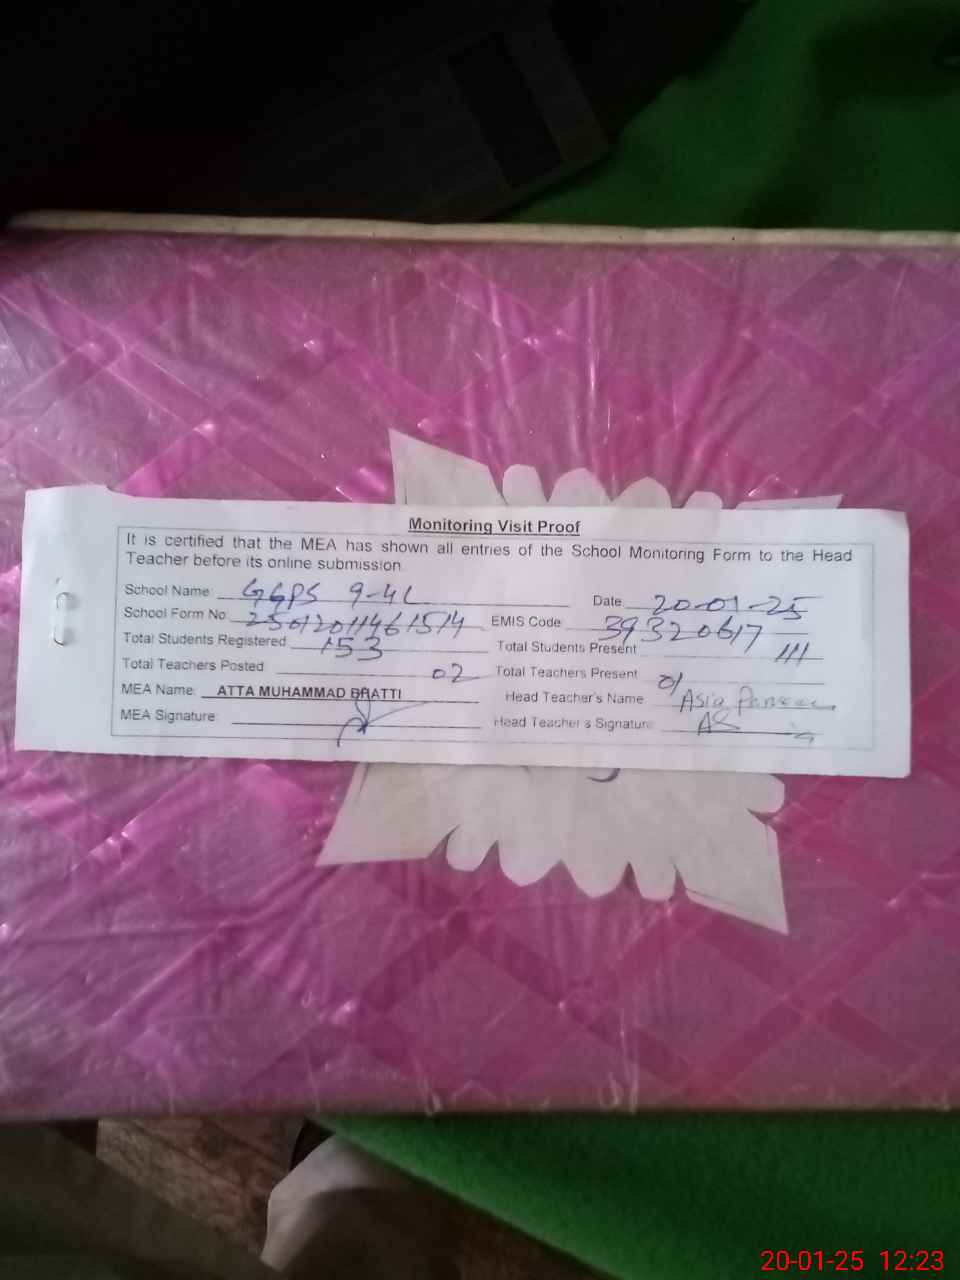 Monitoring Visit Proof
It is certified that the MEA has shown all entries of the School Monitoring Form to the Head
Teacher before its online submission.
School Name GGPS 9-4L Date 20-01-25
School Form No. 2501201146 1514 EMIS Code 39320617
Total Students Registered 153 Total Students Present 111
Total Teachers Posted 02 Total Teachers Present 01
MEA Name: ATTA MUHAMMAD BHATTI Head Teacher's Name Asia Parveen
MEA Signature: Head Teacher's Signature
20-01-25 12:23